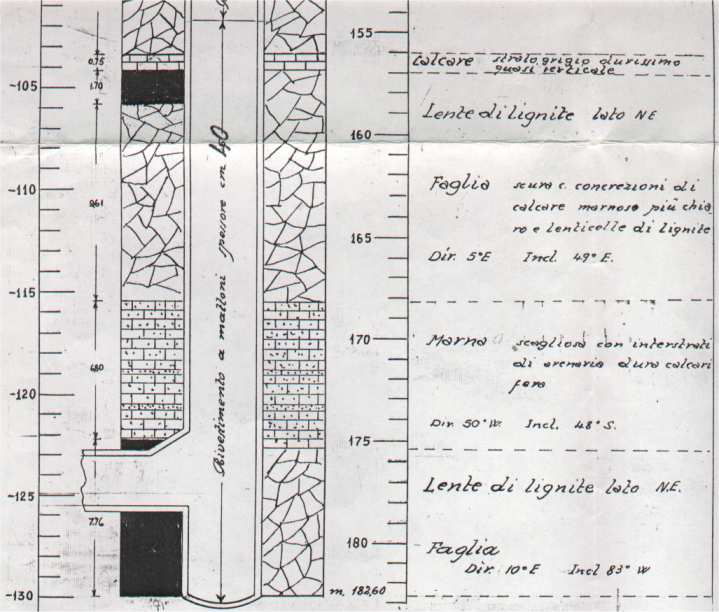 155
Calcare strato grigio durissimo
quasi verticale
0,75
-105
1.70
Lente di lignite lato NE
160
-110
9,61
Faglia scura c. concrezioni di
calcare marnoso più chia
ro e lenticelle di lignite
165
Dir. 5°E Incl. 49° E.
-115
170
Marna scagliosa con interstrati
di arenaria dura calcari
fera
4,80
-120
Dir. 50° W. Incl. 48° S.
175
Rivestimento a mattoni spessore cm. 40
-125
Lente di lignite lato N.E.
7.76
180
Faglia
Dir. 10° E Incl 83° W
-130
m. 182,60